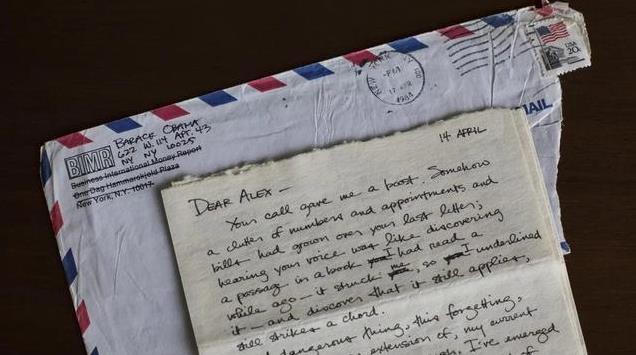 NEW YORK, NY
PM
17 APR
1984
USA
20c
MAIL
BARACK OBAMA
622 W. 114 APT. 43
NY NY 10025
BIMR
Business International Money Report
One Dag Hammarskjold Plaza
New York, N.Y. 10017
14 APRIL
DEAR ALEX —
Your call gave me a boost. Somehow
a clutter of numbers and appointments and
bills had grown over your last letter;
hearing your voice was like discovering
a passage in a book I had read a
while ago — it struck me, so I underlined
it — and discover that it still applies,
still strikes a chord.
dangerous thing, this forgetting,
extension of, my current
I've emerged
of